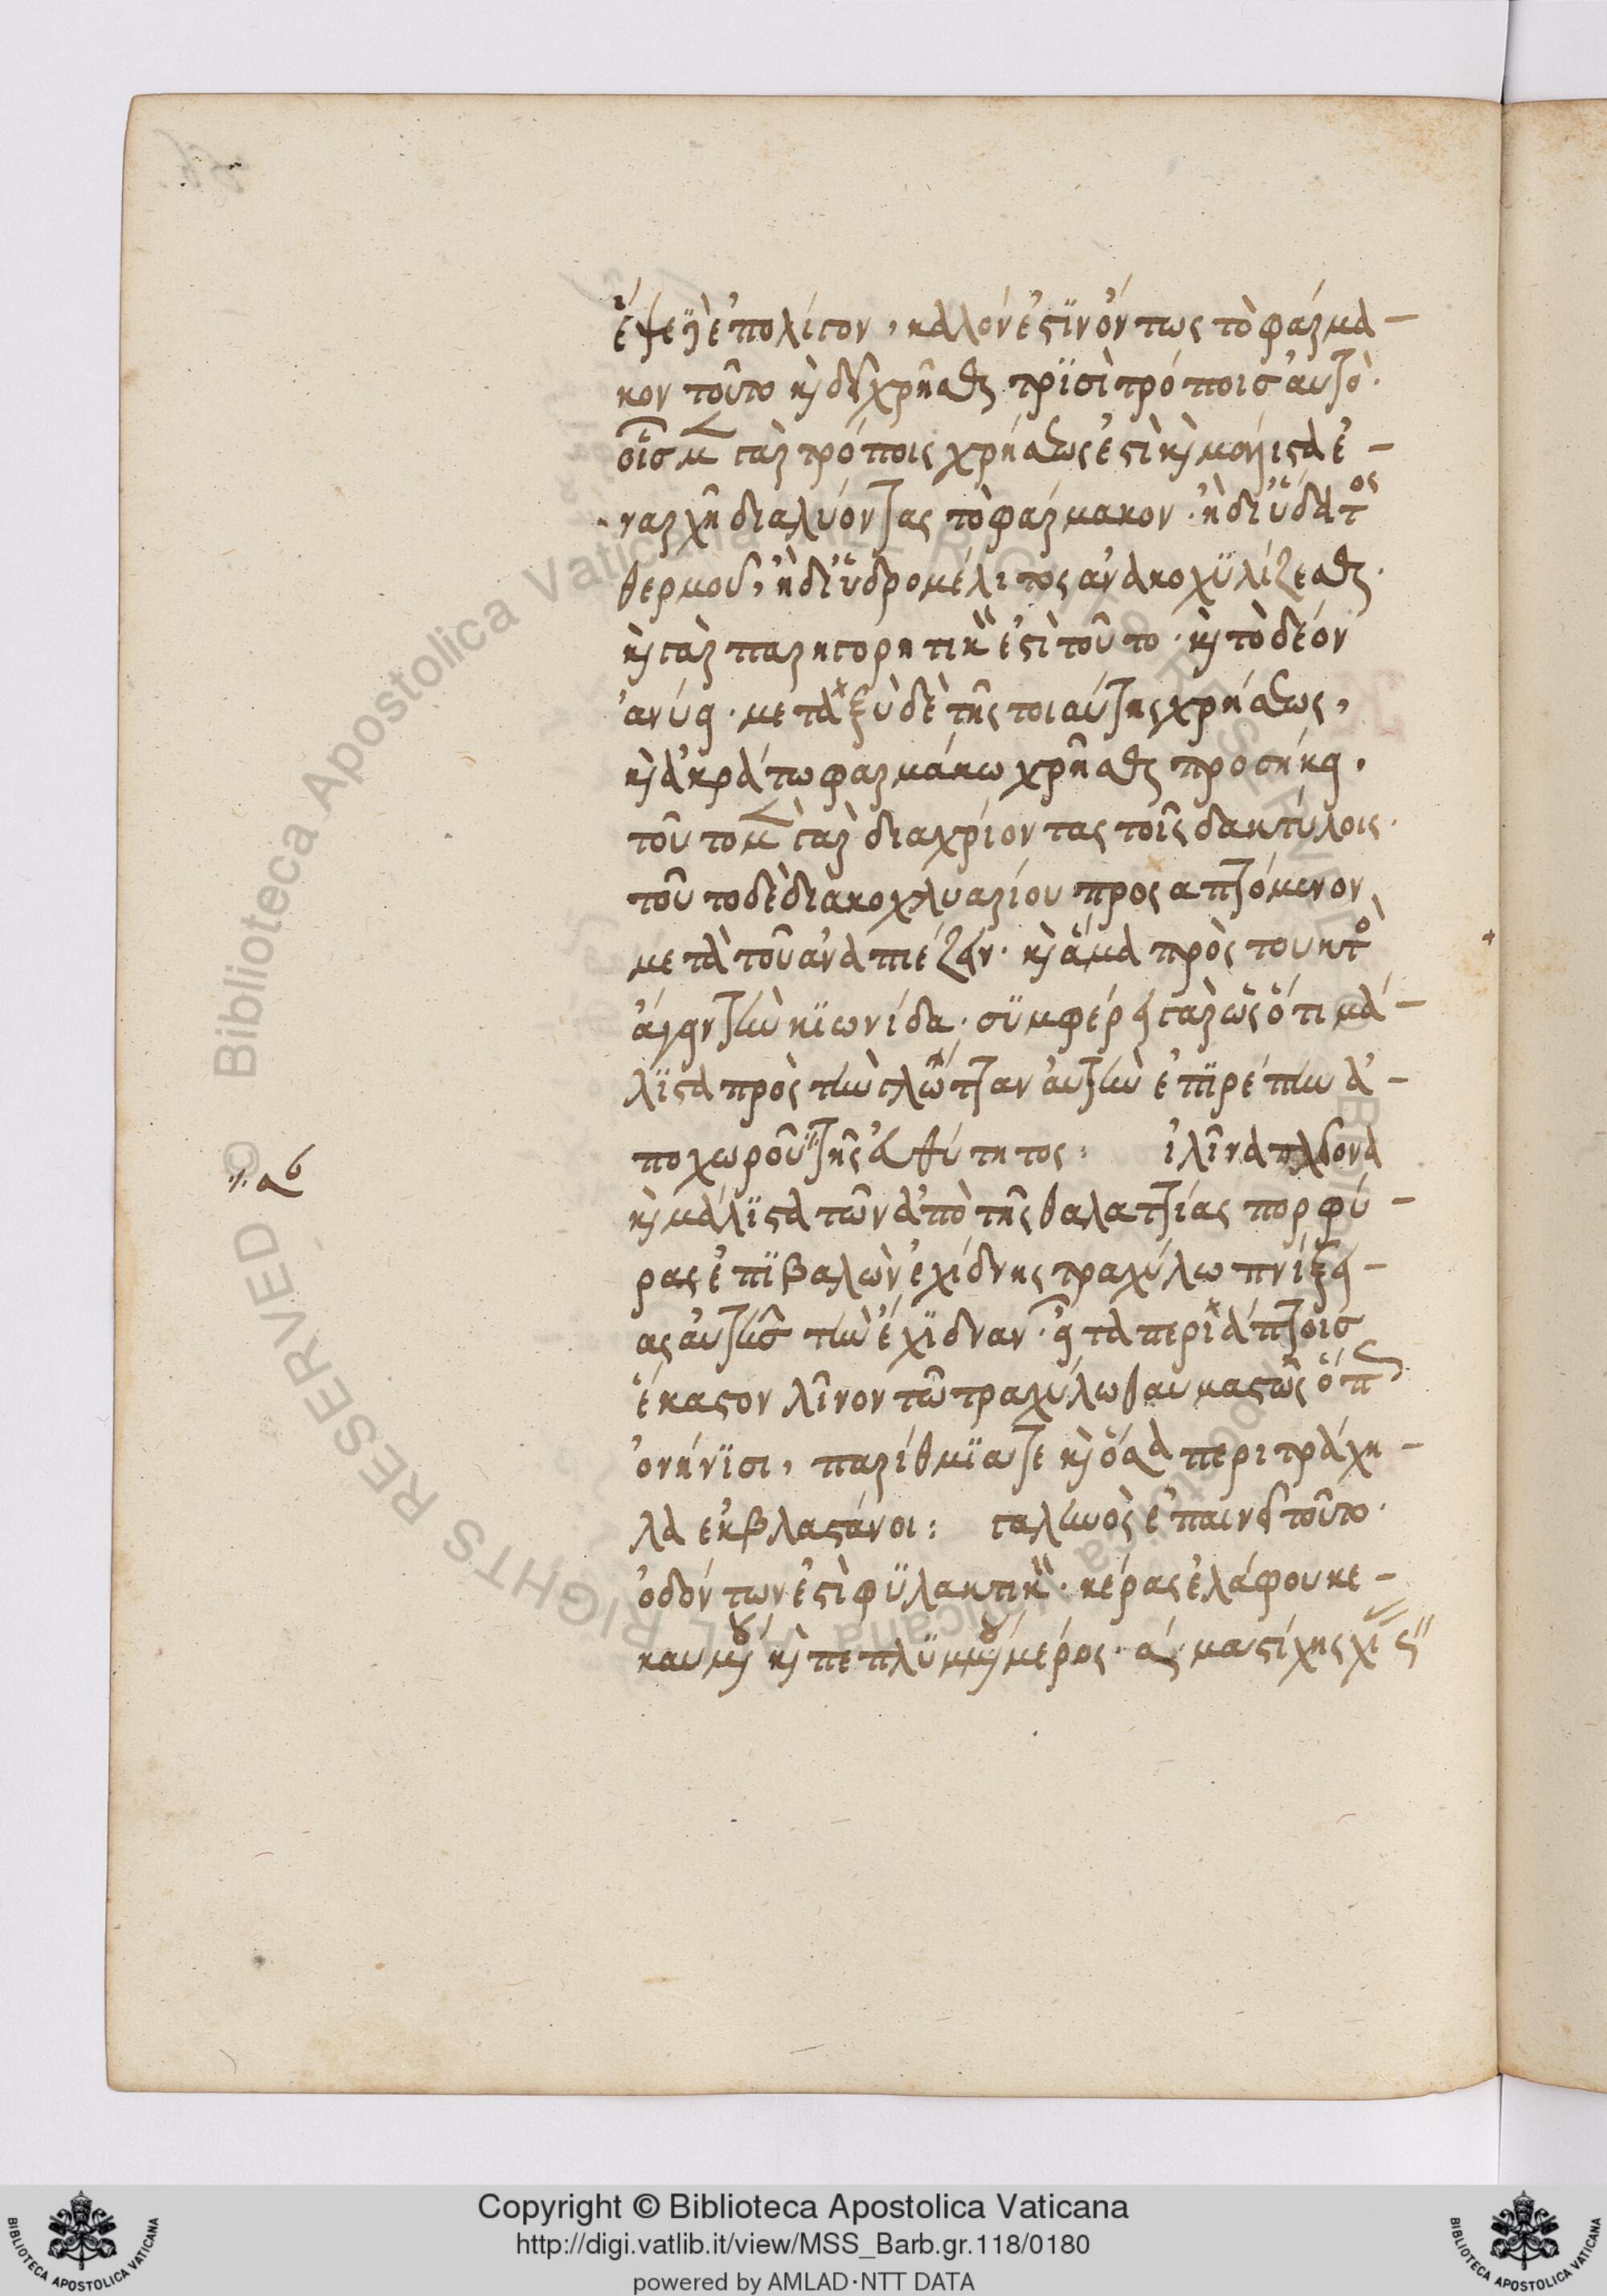 ἕψει ἐπ' ὀλίγον, καλὸν ἐστὶν ὄντως τὸ φάρμα-
κον τοῦτο καὶ δεῖ χρῆσθαι τρισὶ τρόποις αὐτῷ.
τρόποις χρήσεως ἐστὶ καὶ μάλιστα ἐ-
ναρχῆ διαλύοντας τὸ φάρμακον. ἢ δι' ὕδατος
θερμοῦ, ἢ δι' ὑδρομέλιτος ἀνακογχυλίζεσθαι.
καὶ γὰρ παρηγορητικὸν ἐστὶ τοῦτο. καὶ τὸ δέον
ἀνύει. μεταξὺ δὲ τῆς τοιαύτης χρήσεως,
καὶ ἀκράτω φαρμάκω χρῆσθαι προσήκει.
τοῦτο μὲν γὰρ διαχρίοντας τοῖς δακτύλοις.
τοῦτο δὲ διὰ κοχλιαρίου προσαπτόμενον
μετὰ τοῦ ἀναπιέζειν. καὶ ἅμα πρὸς τουκτὸ
ἄγειν τὴν κιονίδα. συμφέρει γὰρ ὡς ὅτι μά-
λιστα πρὸς τὴν γλῶτταν αὐτὴν ἐπιρέπειν ἀ-
ποχωροῦ τῆς εὐθύτητος: λῖνα πλείονα
καὶ μάλιστα τῶν ἀπὸ τῆς θαλαττίας πορφύ-
ρας ἐπιβαλὼν ἐχίδνης τραχήλω πνίξει-
ας αὐτοῖς τὴν ἔχιδναν. εἶτα περιάπτοις
ἕκαστον λῖνον τῶ τραχήλω θαυμαστῶς ὅπως
ὀνήνισι, παρίσθμιά τε καὶ ὅσα περὶ τράχη-
λα ἐκβλαστάνοι: γαληνὸς ἐπαινεῖ τοῦτο.
ὀδόντων ἐστὶ φυλακτικὸν. κέρας ἐλάφου κε-
καυμένου καὶ πεπλυμμένου μέρος. μαστίχης χί
Copyright © Biblioteca Apostolica Vaticana
http://digi.vatlib.it/view/MSS_Barb.gr.118/0180
powered by AMLAD·NTT DATA